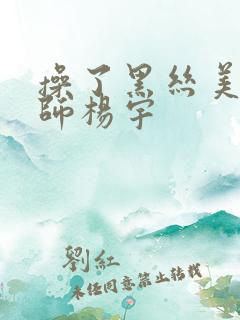 操了黑絲美
師楊宇
劉紅
未经同意禁止转载